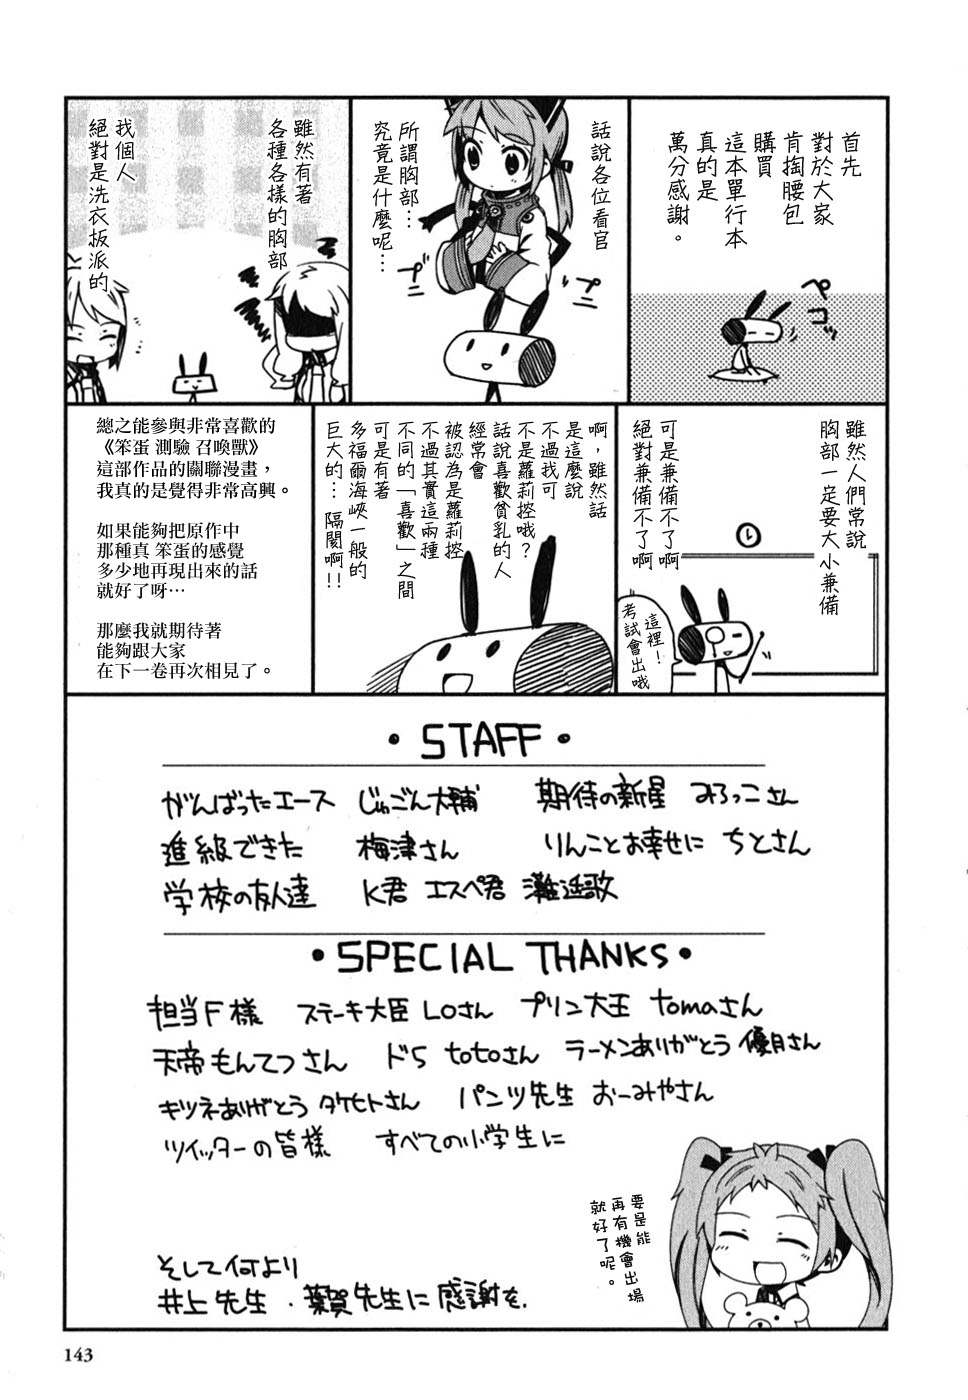 首先
對於大家
肯掏腰包
購買
這本單行本
真的是
萬分感謝。
ペコッ
話說各位看官
所謂胸部…
究竟是什麼呢…
プニ
プニ
雖然有著
各種各樣的胸部
我個人
絕對是洗衣扳派的
雖然人們常說
胸部一定要大小兼備
可是兼備不了啊
絕對兼備不了啊
這裡!
考試會出哦
啊,雖然話
是這麼說
不過找可
不是蘿莉控哦?
話說喜歡貧乳的人
經常會
被認為是蘿莉控
不過其實這兩種
不同的「喜歡」之間
可是有著
多福爾海峽一般的
巨大的… 隔閡啊!!
總之能參與非常喜歡的
《笨蛋 測驗 召喚獸》
這部作品的關聯漫畫,
我真的是覺得非常高興。
如果能夠把原作中
那種真 笨蛋的感覺
多少地再現出來的話
就好了呀…
那麼我就期待著
能夠跟大家
在下一卷再次相見了。
・STAFF・
がんばったエース じゅごん大輔 期待の新星 みろっこさん
進級できた 梅津さん りんことお幸せに ちとさん
学校の友人達 K君 エスペ君 灘遥歌
・SPECIAL THANKS・
担当F様 ステーキ大臣 Loさん プリン大王 tomaさん
天帝もんてつさん ド5 totoさん ラーメンありがとう 優月さん
キツネありがとう タケヒトさん パンツ先生 おーみやさん
ツイッターの皆様 すべての小学生に
そして何より
井上先生・葉賀先生に感謝を.
要是能
再有機會出場
就好了呢。
143